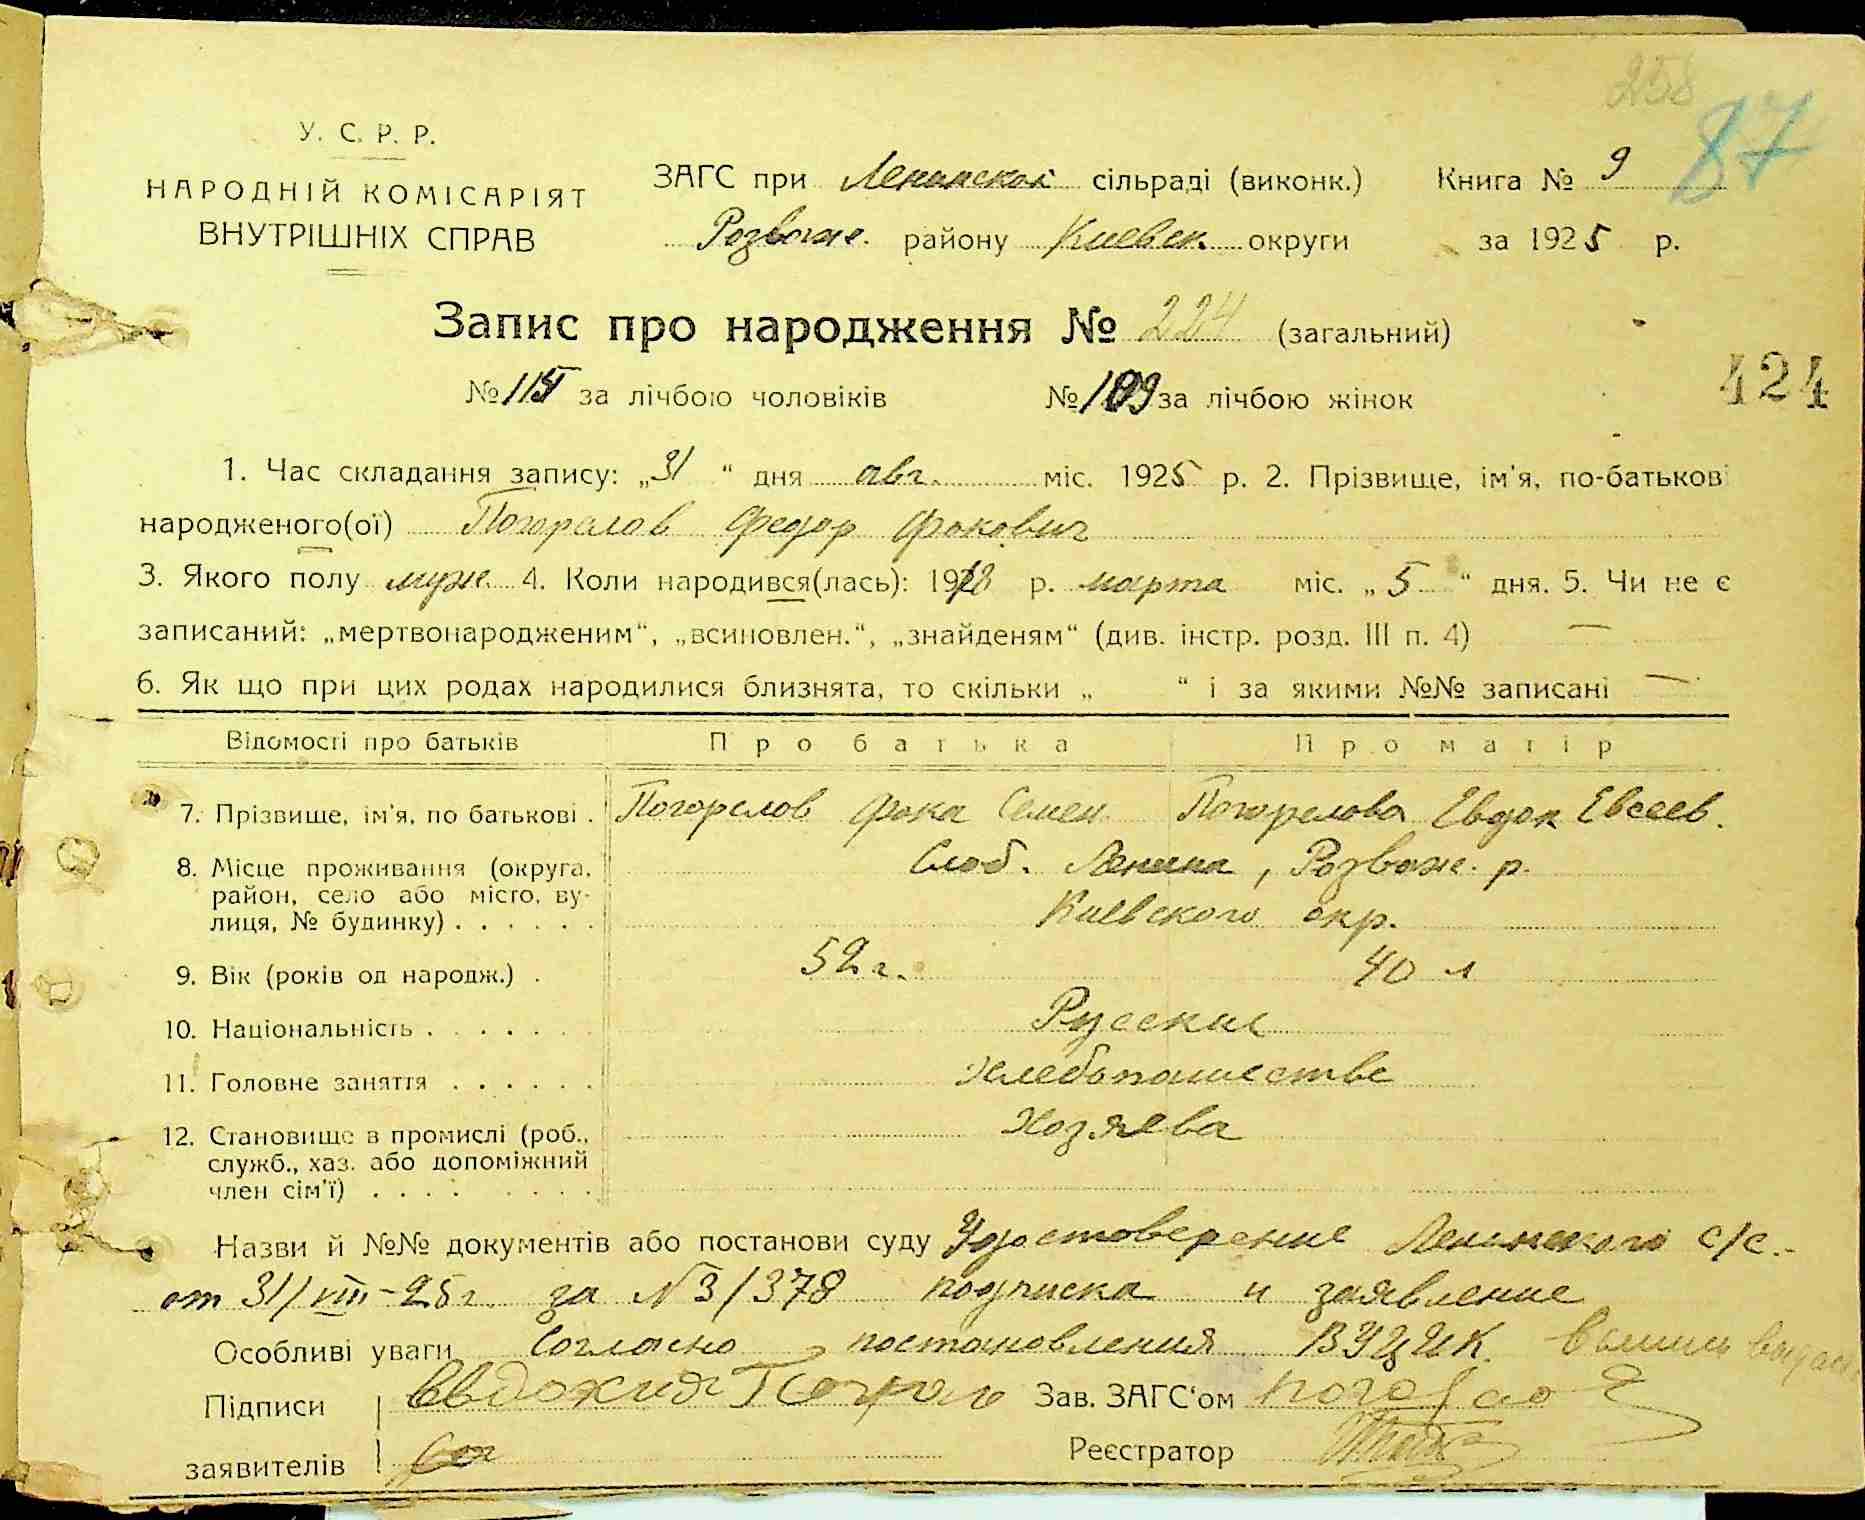 258
87
У. С. Р. Р.
НАРОДНІЙ КОМІСАРІЯТ
ВНУТРІШНІХ СПРАВ
ЗАГС при Ленинской сільраді (виконк.) Книга № 9
Розваж. району Киевск. округи за 1925 р.
Запис про народження № 224 (загальний)
№ 115 за лічбою чоловіків № 109 за лічбою жінок
424
1. Час складання запису: „31“ дня авг. міс. 1925 р. 2. Прізвище, ім'я, по-батькові
народженого(ої) Погорелов Федор Фокович
3. Якого полу муж. 4. Коли народився(лась): 1918 р. марта міс. „5“ дня. 5. Чи не є
записаний: „мертвонародженим“, „всиновлен.“, „знайденям“ (див. інстр. розд. III п. 4) —
6. Як що при цих родах народилися близнята, то скільки „ “ і за якими №№ записані —
Відомості про батьків Про батька Про матір
7. Прізвище, ім'я, по батькові . Погорелов Фока Семен. Погорелова Евдок Евсеев.
8. Місце проживання (округа, Слоб. Ленина, Розваж. р.
район, село або місто, ву-
лиця, № будинку) . . . . . . Киевского окр.
9. Вік (років од народж.) . 52 г. 40 л
10. Національність . . . . . . . Русские
11. Головне заняття . . . . . . Хлебопашестве
12. Становище в промислі (роб., Хозяева
служб., хаз. або допоміжний
член сім'ї) . . . . . . . .
Назви й №№ документів або постанови суду Удостоверение Ленинского с/с.-
от 31/VIII-25 г. за № 3/378 подписка и заявление
Особливі уваги Согласно постановления ВУЦИК.
Підписи Евдокия Погоре Зав. ЗАГС'ом
заявителів Реєстратор